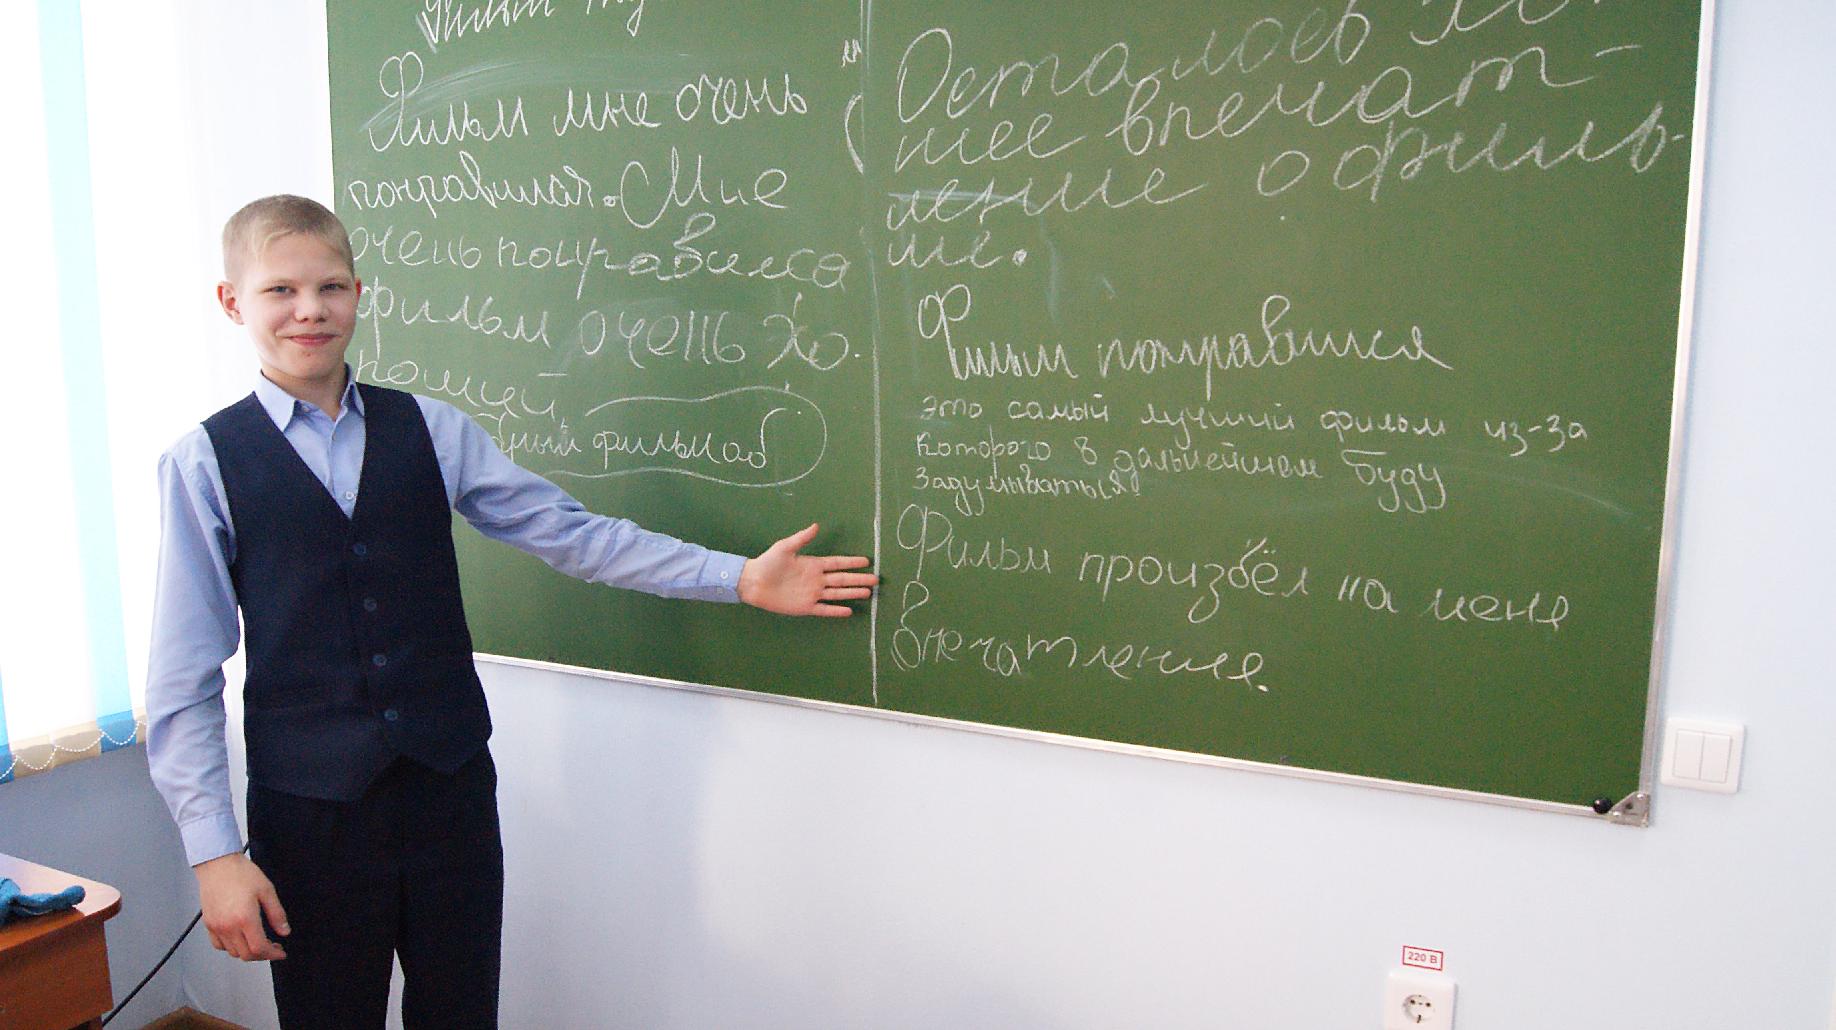 Фильм
Фильм мне очень
понравился. Мне
очень понравился
фильм очень хо-
роший.
фильм об
Осталось хо-
шее впечат-
ление о филь-
ме.
Фильм понравился
это самый лучший фильм из-за
которого в дальнейшем буду
задумываться.
Фильм произвёл на меня
впечатление.
220 В